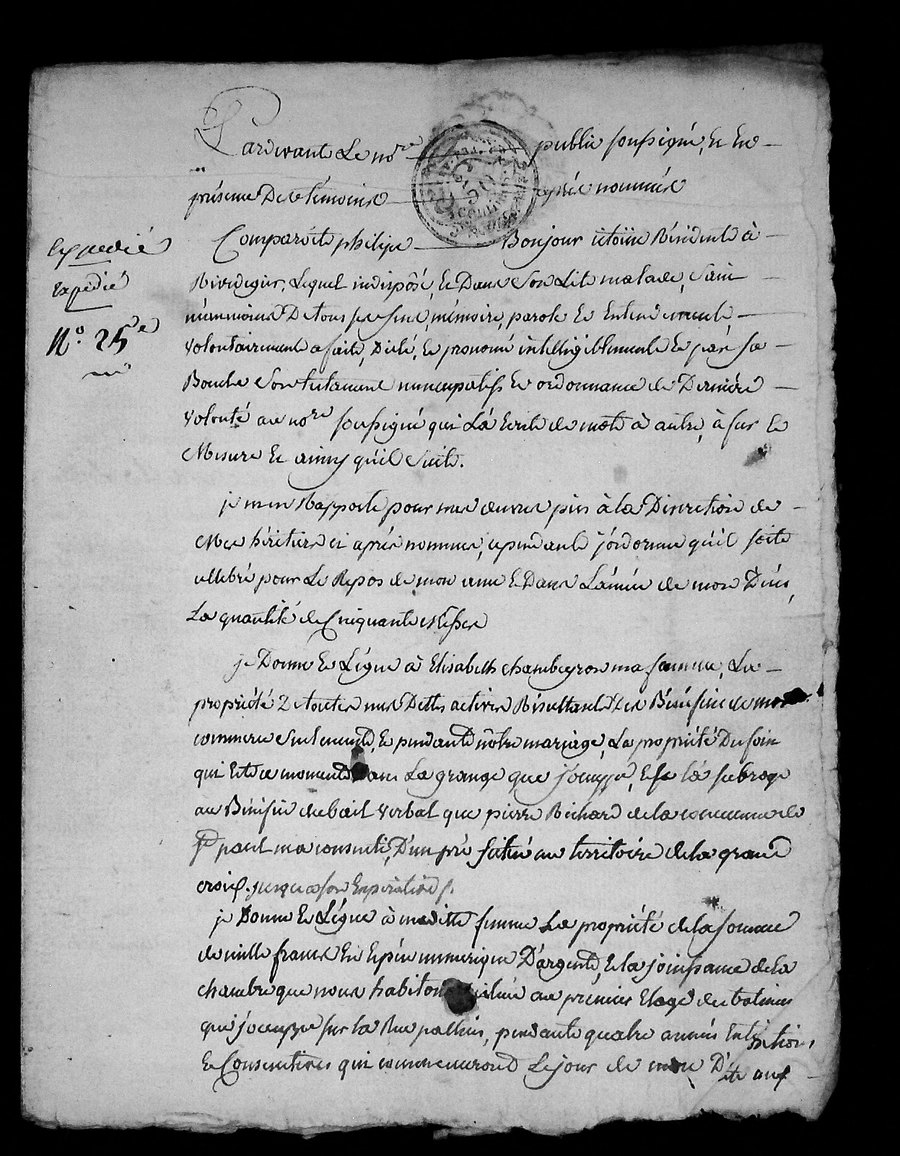 Pardevant Le no.re public soussigné, Et En
présence De Se témoins après nommés
Comparoite philipe Bonjour citoïen Résident à
Expedié
Expédié
N.o 25.e
Rivedegier, Lequel indisposé, Et Dans Son Lit malade, Sain
néanmoins De tous ses sens, mémoire, parole Et Entendement
volontairement a fait, Dicté, Et prononcé intelligiblement Et par sa
Bouche Son testament nuncupatif Et ordonnance de Dernière
volonté au no.re soussigné qui L'a Ecrit de mot à autre, à fur Et
Mesure Et ainsy qu'il Suit.
je m'en Rapporte pour mes œuvres pies à la Discretion de
Mes héritiers ci après nommés, cependant j'ordonne qu'il soit
cellebré pour Le Repos de mon ame Et Dans L'année de mon Décès,
La quantité de Cinquante Messes
je Donne Et Légue à Elisabeth chambeyron ma femme, La
propriété De toutes mes Dettes actives Résultant Des Bénéfices de mon
commerce Seulement, Et pendant nôtre mariage, La propriété Du foin
qui Est ce moment Dans La grange que j'occuppe, Et je La subroge
au Bénéfice du bail verbal que pierre Richard de la commune de
S.t paul m'a consenti, D'un pré situé au territoire de la grand
croix, jusqu'a son Expiration
je Donne Et Légue à maditte femme La propriété de la Somme
de mille francs En Espèce numerique D'argent, Et la jouissance de la
chambre que nous habitons située au premier Etage du batiment
que j'occuppe sur la Rue palluis, pendant quatre années Entières
Et Consecutives qui commenceront Le jour de mon Décès